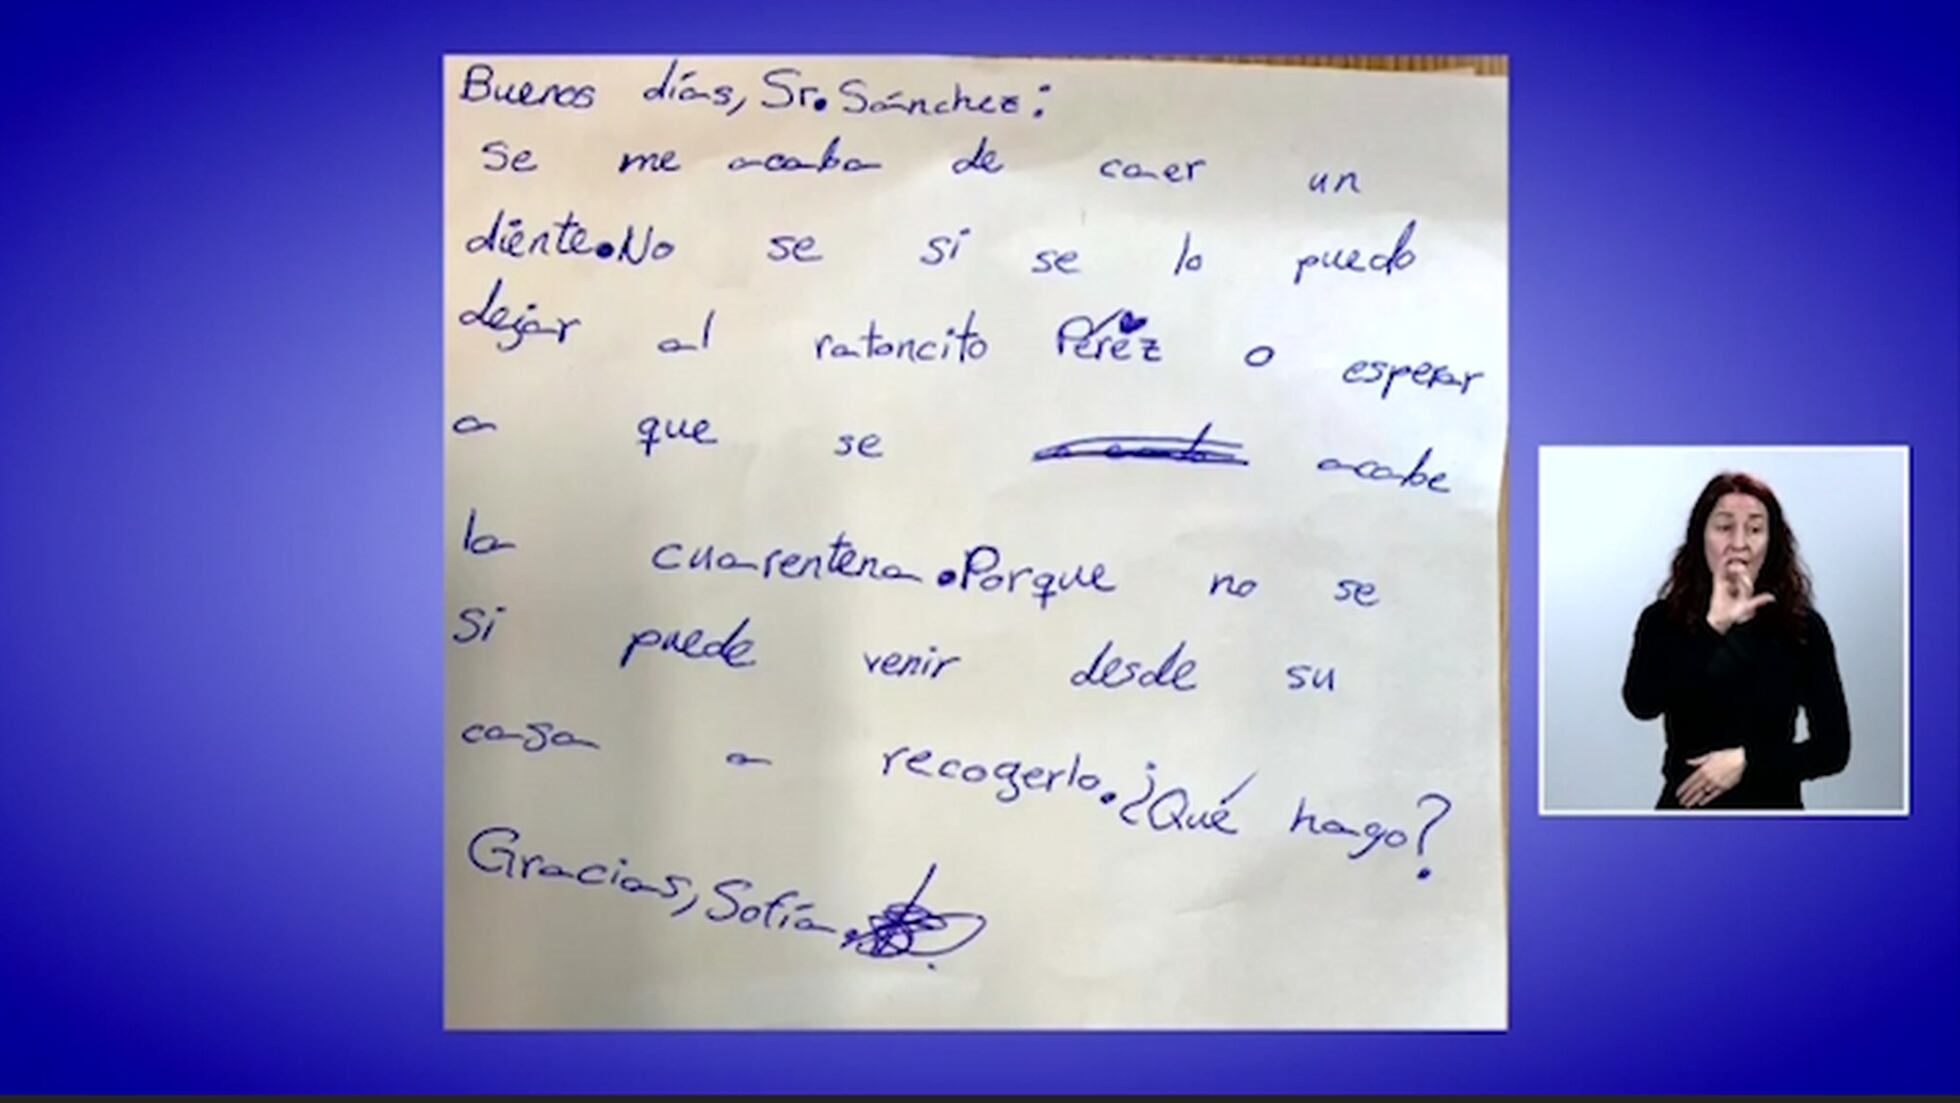 Buenos días, Sr. Sánchez:
Se me acaba de caer un
diente. No se si se lo puedo
dejar al ratoncito Pérez o esperar
a que se acabe
la cuarentena. Porque no se
si puede venir desde su
casa a recogerlo. ¿Qué hago?
Gracias, Sofía.